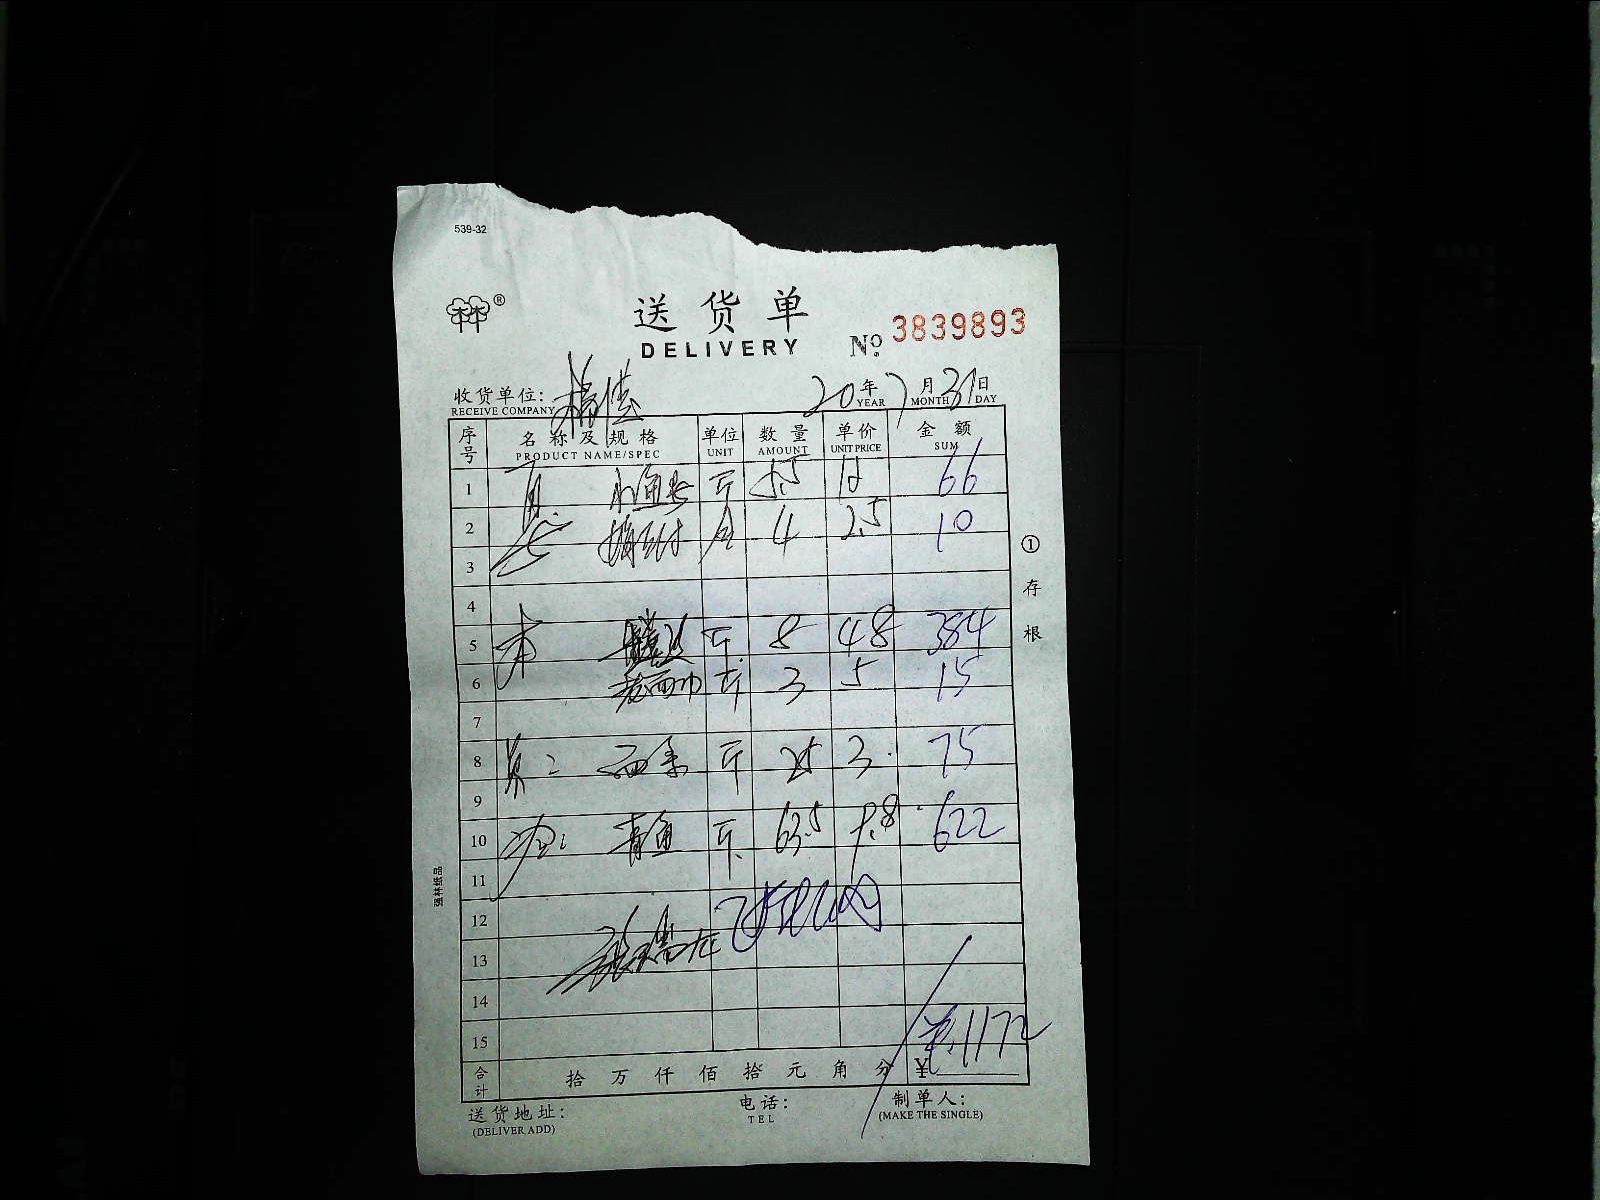 539-32
林®
送货单
DELIVERY
No. 3839893
收货单位: 20年7月31日
RECEIVE COMPANY YEAR MONTH DAY
序号 名称及规格 单位 数量 单价 金额
PRODUCT NAME/SPEC UNIT AMOUNT UNIT PRICE SUM
1 斤 5.5 12 66
2 4 2.5 10
3
4
5 斤 8 48 384
6 斤 3 5 15
7
8 斤 25 3 75
9
10 青鱼 斤 63.5 9.8 622
11
12
13
14
15 1172
合计 拾万仟佰拾元角分 ¥
送货地址: 电话: 制单人:
(DELIVER ADD) TEL (MAKE THE SINGLE)
①存根
强林纸品